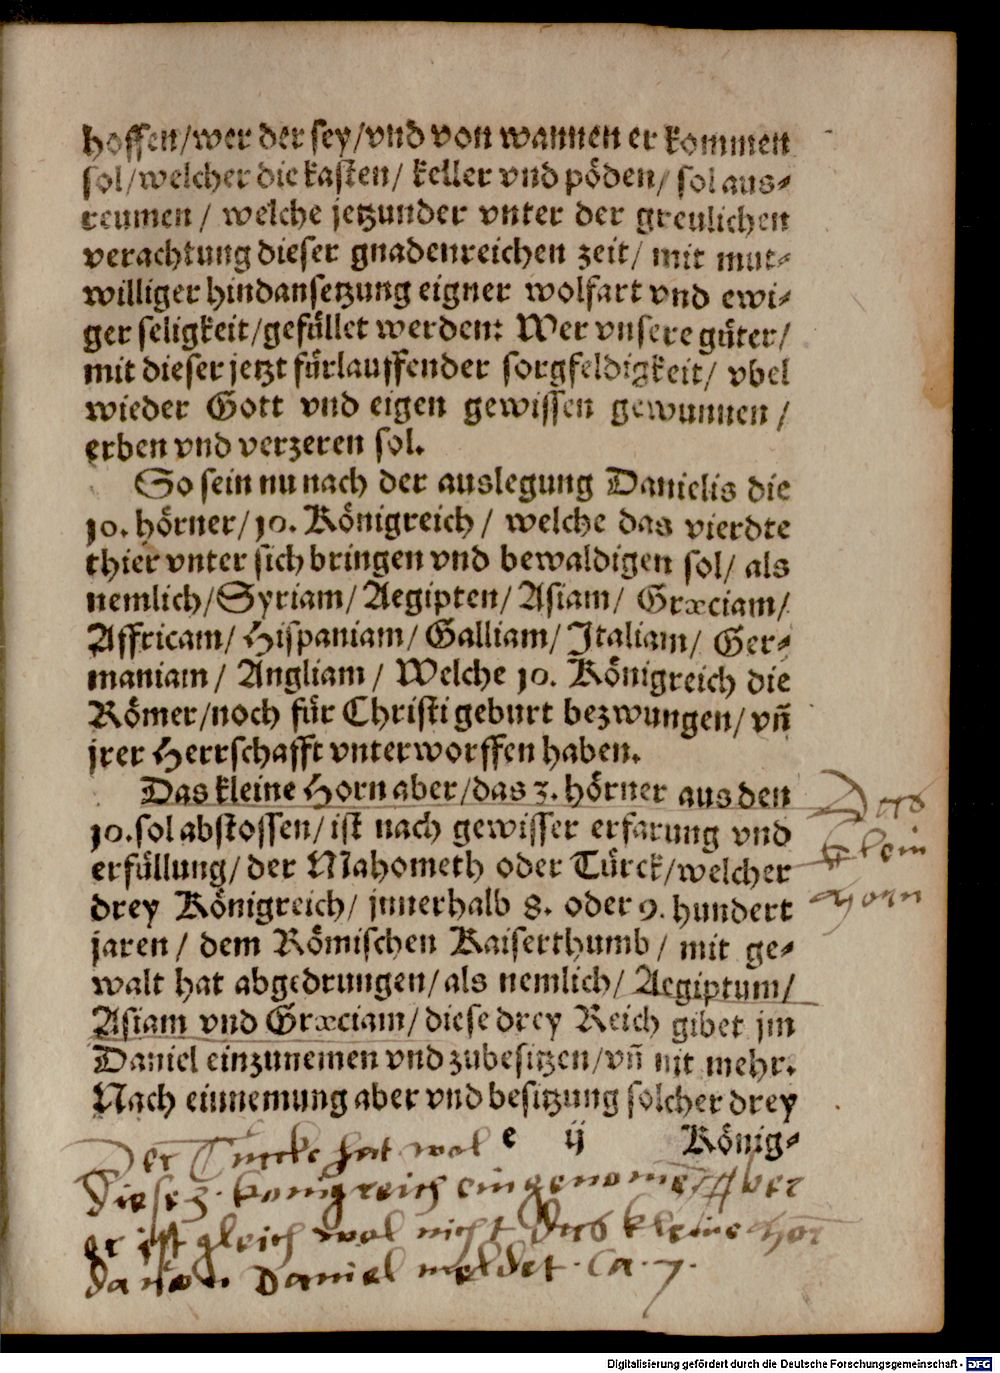 hoffen/wer der sey/vnd von wannen er kommen
sol/welcher die kasten/ keller vnd pöden/ sol aus⸗
reumen / welche jetzunder vnter der greulichen
verachtung dieser gnadenreichen zeit/ mit mut⸗
williger hindansetzung eigner wolfart vnd ewi⸗
ger seligkeit/gefüllet werden: Wer vnsere güter/
mit dieser jetzt fürlauffender sorgfeldigkeit/ vbel
wieder Gott vnd eigen gewissen gewunnen /
erben vnd verzeren sol.
So sein nu nach der auslegung Danielis die
10. hörner/10. Königreich / welche das vierdte
thier vnter sich bringen vnd bewaldigen sol/ als
nemlich/Syriam/ Aegipten/ Asiam/ Græciam/
Affricam/ Hispaniam/ Galliam/ Italiam/ Ger⸗
maniam / Angliam / Welche 10. Königreich die
Römer/noch für Christi geburt bezwungen/ vñ
jrer Herrschafft vnterworffen haben.
Das kleine Horn aber/das 3. hörner aus den
10. sol abstossen/ ist nach gewisser erfarung vnd
erfüllung/ der Mahometh oder Türck/welcher
drey Königreich/ jnnerhalb 8. oder 9. hundert
jaren / dem Römischen Kaiserthumb / mit ge⸗
walt hat abgedrungen/ als nemlich/ Aegiptum/
Asiam vnd Græciam/ diese drey Reich gibet jm
Daniel einzunemen vnd zubesitzen/vñ nit mehr.
Nach einnemung aber vnd besitzung solcher drey
e ij König⸗
Das
klein
Horn
Der Turcke hat wol
diese 3. konigreich eingenome̅ Aber
er ist gleich wol nicht das kleine Hor̅
dauon Daniel meldet. Ca. 7.
Digitalisierung gefördert durch die Deutsche Forschungsgemeinschaft - DFG